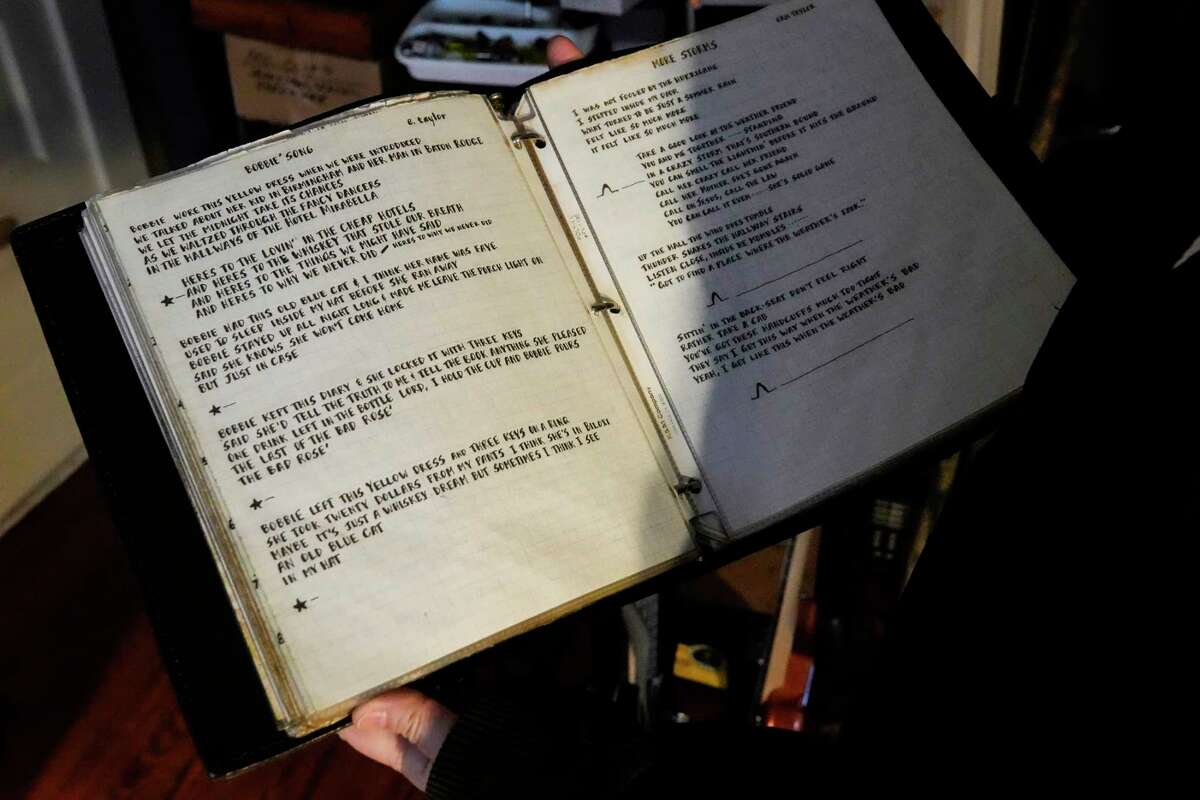 e. taylor
BOBBIE' SONG
BOBBIE WORE THIS YELLOW DRESS WHEN WE WERE INTRODUCED
WE TALKED ABOUT HER KID IN BIRMINGHAM, AND HER MAN IN BATON ROUGE
WE LET THE MIDNIGHT TAKE ITS CHANCES
AS WE WALTZED THROUGH THE FANCY DANCERS
IN THE HALLWAYS OF THE HOTEL MIRABELLA
HERES TO THE LOVIN' IN THE CHEAP HOTELS
AND HERES TO THE WHISKEY THAT STOLE OUR BREATH
AND HERES TO THE THINGS WE MIGHT HAVE SAID
AND HERES TO WHY WE NEVER DID / HERES TO WHY WE NEVER DID
BOBBIE HAD THIS OLD BLUE CAT & I THINK HER NAME WAS FAYE
USED TO SLEEP INSIDE MY HAT BEFORE SHE RAN AWAY
BOBBIE STAYED UP ALL NIGHT LONG & MADE ME LEAVE THE PORCH LIGHT ON
SAID SHE KNOWS SHE WON'T COME HOME
BUT JUST IN CASE
BOBBIE KEPT THIS DIARY & SHE LOCKED IT WITH THREE KEYS
SAID SHE'D TELL THE TRUTH TO ME & TELL THE BOOK ANYTHING SHE PLEASED
ONE DRINK LEFT IN THE BOTTLE LORD, I HOLD THE CUP AND BOBBIE POURS
THE LAST OF THE BAD ROSE'
THE BAD ROSE'
BOBBIE LEFT THIS YELLOW DRESS AND THREE KEYS ON A RING
SHE TOOK TWENTY DOLLARS FROM MY PANTS I THINK SHE'S IN BILOXI
MAYBE IT'S JUST A WHISKEY DREAM BUT SOMETIMES I THINK I SEE
AN OLD BLUE CAT
IN MY HAT
6
7
8
ERIN TAYLOR
MORE STORMS
I WAS NOT FOOLED BY THE HURRICANE
I STEPPED INSIDE MY DOOR
WHAT TURNED TO BE JUST A SUMMER RAIN
FELT LIKE SO MUCH MORE
IT FELT LIKE SO MUCH MORE
TAKE A GOOD LOOK AT THE WEATHER FRIEND
YOU AND ME TOGETHER ..... STANDING
IN A CRAZY STORM THAT'S SOUTHERN BOUND
YOU CAN SMELL THE LIGHTNIN' BEFORE IT HITS THE GROUND
CALL HER CRAZY CALL HER FRIEND
CALL HER MOTHER SHE'S GONE AGAIN
CALL ON JESUS, CALL THE LAW
YOU CAN CALL IT EVEN ..... SHE'S SOLID GONE
UP THE HALL THE WIND DOES TUMBLE
THUNDER SHAKES THE HALLWAY STAIRS
LISTEN CLOSE, INSIDE HE MUMBLES .....
"GOT TO FIND A PLACE WHERE THE WEATHER'S FAIR."
SITTIN' IN THE BACK-SEAT DON'T FEEL RIGHT
RATHER TAKE A CAB
YOU'VE GOT THESE HANDCUFFS MUCH TOO TIGHT
THEY SAY I GET THIS WAY WHEN THE WEATHER'S BAD
YEAH, I GET LIKE THIS WHEN THE WEATHER'S BAD